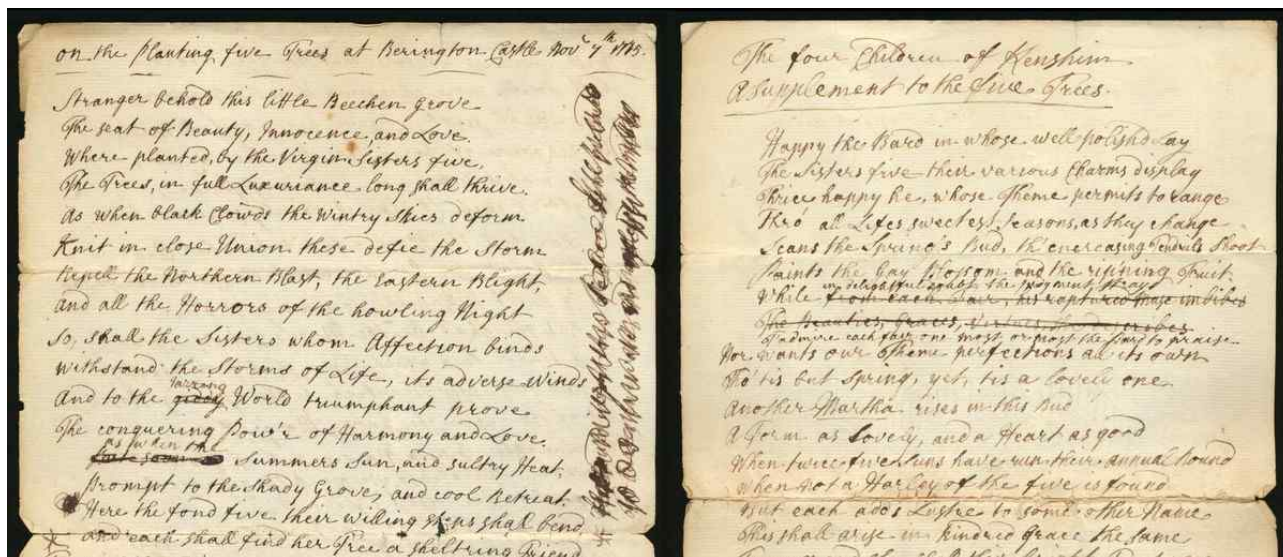 on the Planting five Trees at Berington Castle Novr 7th 1745.
Stranger behold this little Beechen Grove
The seat of Beauty, Innocence, and Love.
Where planted, by the Virgin Sisters five,
The Trees, in full Luxuriance long shall thrive.
As when black Clowds the Wintry Skies deform
Knit in close Union these defie the Storm
Repell the Northern Blast, the Eastern Blight,
and all the Horrors of the howling Night
So, shall the Sisters whom Affection binds
withstand the Storms of Life, its adverse Winds
jarring
And to the giddy World triumphant prove
The conquering Pow'r of Harmony and Love.
As when the
Summers Sun, and sultry Heat,
Prompt to the Shady Grove, and cool Retreat
Here the fond five their willing steps shall bend,
and each shall find her Tree a sheltring Friend
The four Children of Kenshim
A Supplement to the five Trees.
Happy the Bard in whose well polish'd Lay
The Sisters five their various Charms display
Thrice happy he, whose Theme permits to range
Thro' all Lifes sweetest Seasons, as they change
Scans the Spring's Bud, th'encreasing Tendrils Shoot
Paints the Gay Blossom and the rip'ning Fruit
in delightful doubt the Judgment strays
While from each Fair, his raptured Muse imbibes
The Beauties, Graces, Virtues,
T'admire each fair one most, or most the Bard to praise
Nor wants our Theme perfections all its own
Tho' tis but Spring, yet, tis a lovely one.
Another Martha rises in this Bud
A Form as Lovely, and a Heart as good
When twice five Suns have run their annual Round
when not a Harley of the five is found
But each adds Lustre to some other Name
This shall arise in kindred Grace the same